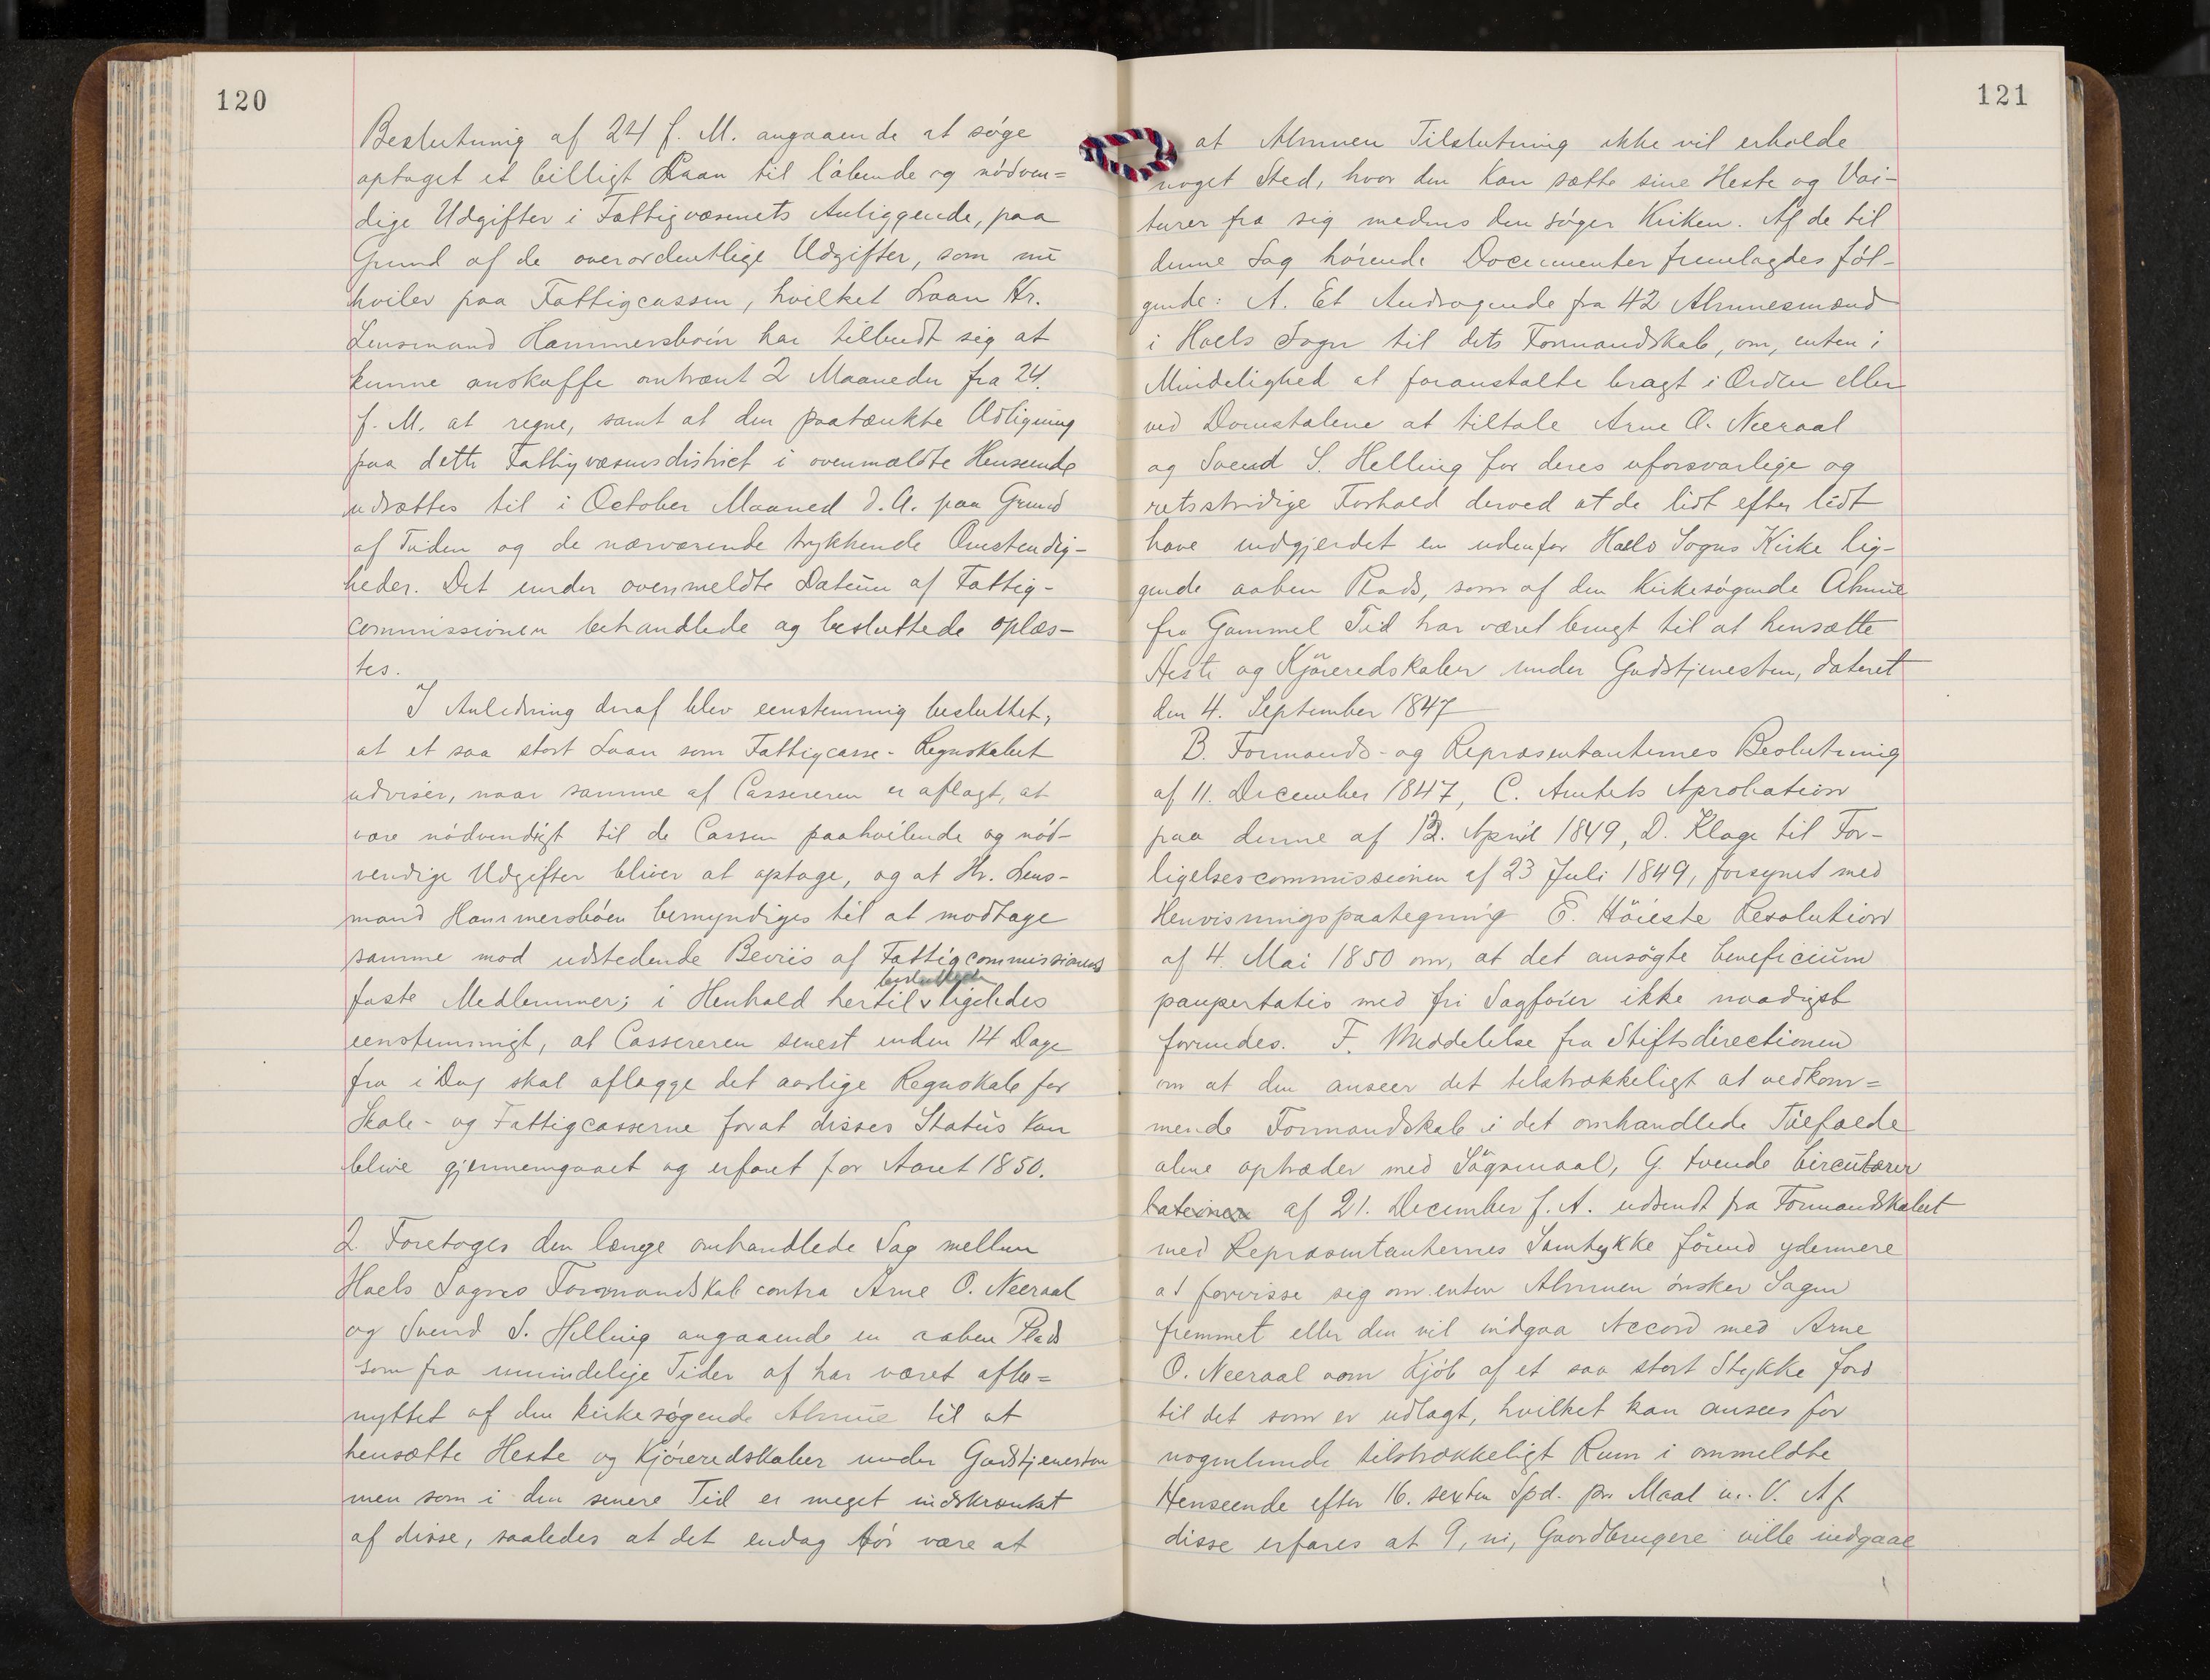 120
Beslutning af 24 f. M. angaaende at søge
optaget et billigt Laan til løbende og nødven=
dige Udgifter i Fattigvæsenets Anliggende, paa
Grund af de overordentlige Udgifter, som nu
hviler paa Fattigcassen, hvilket Laan Hr.
Lensmand Hammersbøin har tilbudt sig at
kunne anskaffe omtrent 2 Maaneder fra 24.
f. M. at regne, samt at den paatænkte Udligning
paa dette Fattigvæsensdistrict i ovenmældte Henseende
udsættes til i October Maaned d. A. paa Grund
af Tiden og de nærværende trykkende Omstendig-
heder. Det under ovenmeldte Datum af Fattig-
commissionen behandlede og besluttede oplæs-
tes.
I Anledning deraf blev eenstemmig besluttet,
at et saa stort Laan som Fattigcasse-Regnskabet
udviser, naar samme af Cassereren er aflagt, at
være nødvendigt til de Cassen paahvilende og nød-
vendige Udgifter bliver at optage, og at Hr. Lens-
mand Hammersbøen bemyndiges til at modtage
samme mod udstedende Beviis af Fattigcommissionens
besluttedes
faste Medlemmer; i Henhold hertil v ligeledes
eenstemmigt, at Cassereren senest inden 14 Dage
fra i Dag skal aflægge det aarlige Regnskab for
Skole- og Fattigcasserne forat disses Status kan
blive gjennemgaaet og erfaret for Aaret 1850.
2. Foretoges den længe omhandlede Sag mellem
Hoels Sogns Formandskab contra Arne O. Neeraal
og Svend S. Helling angaaende en aaben Plads
som fra umindelige Tider af har været afbe=
nyttet af den kirkesøgende Almue til at
hensætte Heste og Kjøreredskaber under Gudstjenesten
men som i den senere Tid er meget indskrænket
af disse, saaledes at det endog tør være at
121
at Almuen Tilslutning ikke vil erholde
noget Sted, hvor den kan sætte sine Heste og Voi-
turer fra sig medens den søger Kirken. Af de til
denne Sag hørende Documenter fremlagdes føl-
gende: A. Et Andragende fra 42 Almuesmænd
i Hoels Sogn til dets Formandskab, om, enten i
Mindelighed at foranstalte bragt i Orden eller
ved Domstolene at tiltale Arne O. Neeraal
og Svend S. Helling for deres uforsvarlige og
retsstridige Forhold derved at de lidt efter lidt
have indgjerdet en udenfor Hoels Sogns Kirke lig-
gende aaben Plads, som af den kirkesøgende Almue
fra Gammel Tid har været brugt til at hensætte
Heste og Kjøreredskaber under Gudstjenesten, dateret
den 4. September 1847
B. Formands- og Repræsentanternes Beslutning
af 11. December 1847, C. Amtets Aprobation
paa denne af 12. April 1849, D. Klage til For-
ligelsescommissionen af 23 Juli 1849, forsynet med
Henvisningspaategning E. Høieste Resolution
af 4. Mai 1850 om, at det ansøgte beneficium
paupertatis med fri Sagfører ikke naadigst
forundes. F. Meddelelse fra Stiftsdirectionen
om at den anseer det tilstrækkeligt at vedkom=
mende Formandskab i det omhandlede Tilfælde
alene optræder med Søgsmaal, G. tvende Circulærer
af 21. December f. A. udsendt fra Formandskabet
med Repræsentanternes Samtykke førend ydermere
at forvisse sig om enten Almuen ønsker Sagen
fremmet eller den vil indgaa Accord med Arne
O. Neeraal om Kjøb af et saa stort Stykke Jord
til det som er udlagt, hvilket kan ansees for
nogenlunde tilstrækkeligt Rum i ommeldte
Henseende efter 16. sexten Spd. pr. Maal m. V. Af
disse erfares at 9, ni, Gaardbrugere ville indgaae